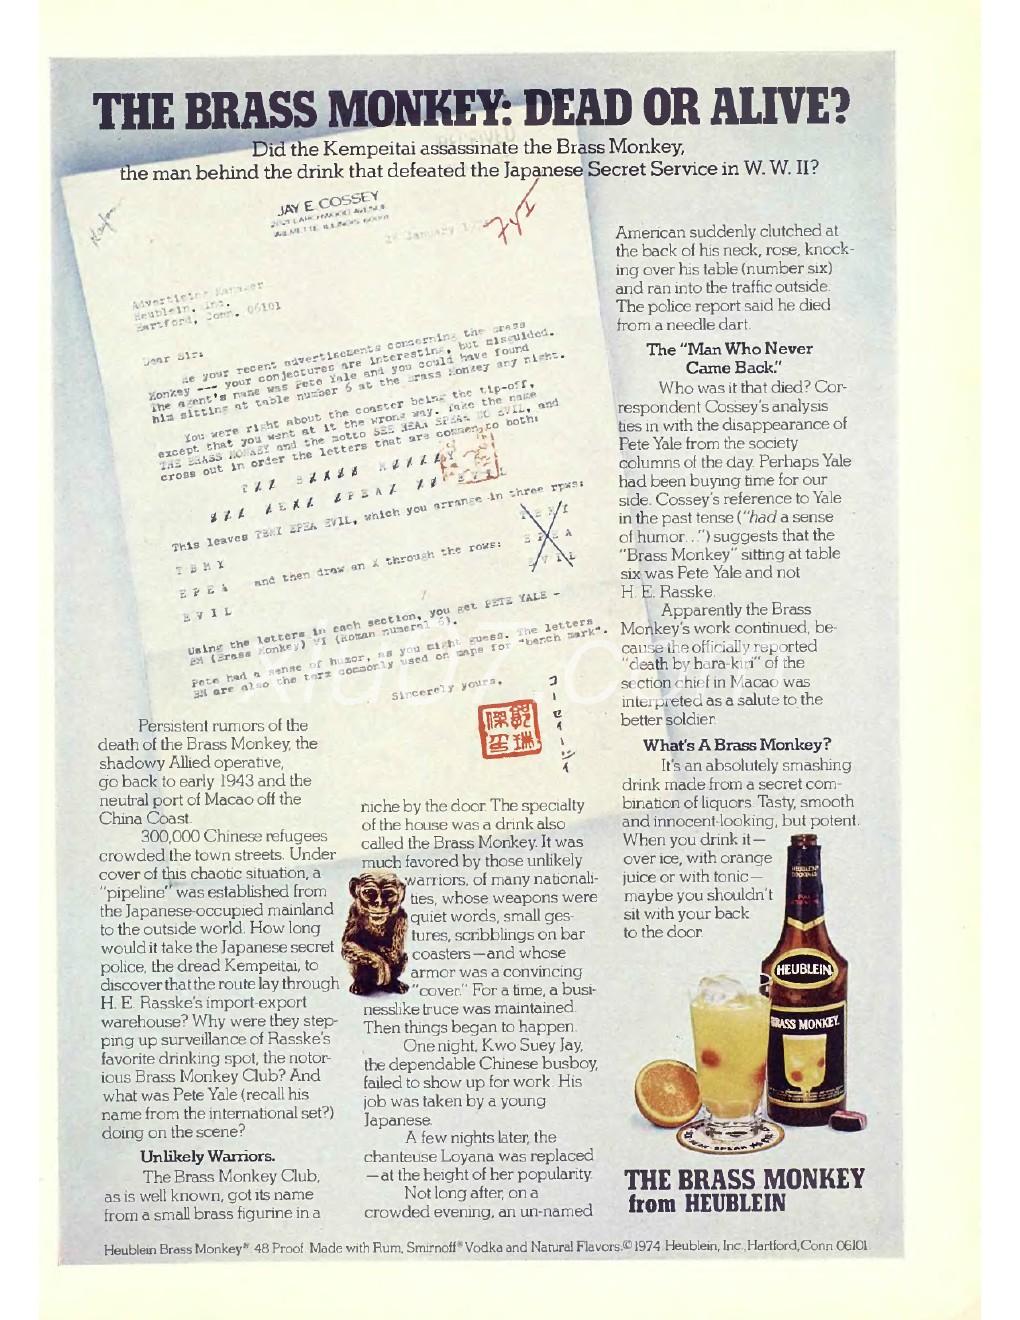 THE BRASS MONKEY: DEAD OR ALIVE?
Did the Kempeitai assassinate the Brass Monkey,
the man behind the drink that defeated the Japanese Secret Service in W. W. II?
JAY E. COSSEY
WILMETTE, ILLINOIS
FYI
January
Advertising Manager
Heublein, Inc.
Hartford, Conn. 06101
Dear Sir:
Re your recent advertisements concerning the Brass
Monkey --- your conjectures are interesting, but misguided.
The agent's name was Pete Yale and you could have found
him sitting at table number 6 at the Brass Monkey any night.
You were right about the coaster being the tip-off,
except that you went at it the wrong way. Take the name
THE BRASS MONKEY and the motto SEE HEAR SPEAK NO EVIL, and
cross out in order the letters that are common to both:
This leaves TBMY EPEA EVIL, which you arrange in three rows:
T B M Y
E P E A and then draw an X through the rows:
E V I L
Using the letters in each section, you get PETE YALE -
BM (Brass Monkey) VI (Roman numeral 6).
Pete had a sense of humor, as you might guess. The letters
BM are also the term commonly used on maps for "bench mark".
Sincerely yours,
Persistent rumors of the
death of the Brass Monkey, the
shadowy Allied operative,
go back to early 1943 and the
neutral port of Macao off the
China Coast.
300,000 Chinese refugees
crowded the town streets. Under
cover of this chaotic situation, a
"pipeline" was established from
the Japanese-occupied mainland
to the outside world. How long
would it take the Japanese secret
police, the dread Kempeitai, to
discover that the route lay through
H. E. Rasske's import-export
warehouse? Why were they step-
ping up surveillance of Rasske's
favorite drinking spot, the notor-
ious Brass Monkey Club? And
what was Pete Yale (recall his
name from the international set?)
doing on the scene?
Unlikely Warriors.
The Brass Monkey Club,
as is well known, got its name
from a small brass figurine in a
niche by the door. The specialty
of the house was a drink also
called the Brass Monkey. It was
much favored by those unlikely
warriors, of many nationali-
ties, whose weapons were
quiet words, small ges-
tures, scribblings on bar
coasters—and whose
armor was a convincing
"cover." For a time, a busi-
nesslike truce was maintained.
Then things began to happen.
One night, Kwo Suey Jay,
the dependable Chinese busboy,
failed to show up for work. His
job was taken by a young
Japanese.
A few nights later, the
chanteuse Loyana was replaced
—at the height of her popularity.
Not long after, on a
crowded evening, an un-named
American suddenly clutched at
the back of his neck, rose, knock-
ing over his table (number six)
and ran into the traffic outside.
The police report said he died
from a needle dart.
The "Man Who Never
Came Back."
Who was it that died? Cor-
respondent Cossey's analysis
ties in with the disappearance of
Pete Yale from the society
columns of the day. Perhaps Yale
had been buying time for our
side. Cossey's reference to Yale
in the past tense ("had a sense
of humor...") suggests that the
"Brass Monkey" sitting at table
six was Pete Yale and not
H. E. Rasske.
Apparently the Brass
Monkey's work continued, be-
cause the officially reported
"death by hara-kiri" of the
section chief in Macao was
interpreted as a salute to the
better soldier.
What's A Brass Monkey?
It's an absolutely smashing
drink made from a secret com-
bination of liquors. Tasty, smooth
and innocent-looking, but potent.
When you drink it—
over ice, with orange
juice or with tonic—
maybe you shouldn't
sit with your back
to the door.
HEUBLEIN
BRASS MONKEY
THE BRASS MONKEY
from HEUBLEIN
Heublein Brass Monkey® 48 Proof. Made with Rum, Smirnoff® Vodka and Natural Flavors. © 1974 Heublein, Inc., Hartford, Conn. 06101